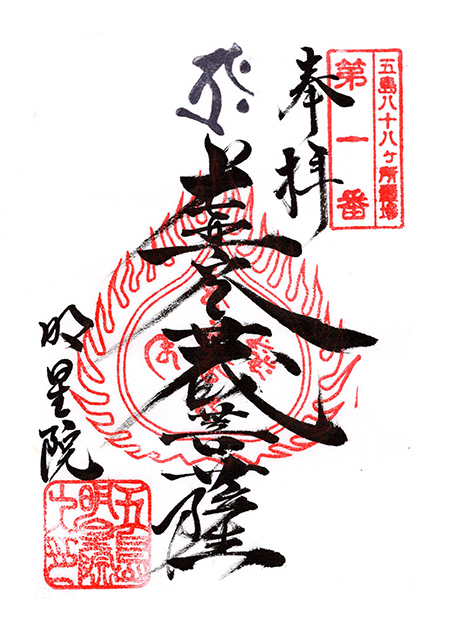 五島八十八ヶ所霊場
第一番
奉拝
虚空蔵菩薩
明星院